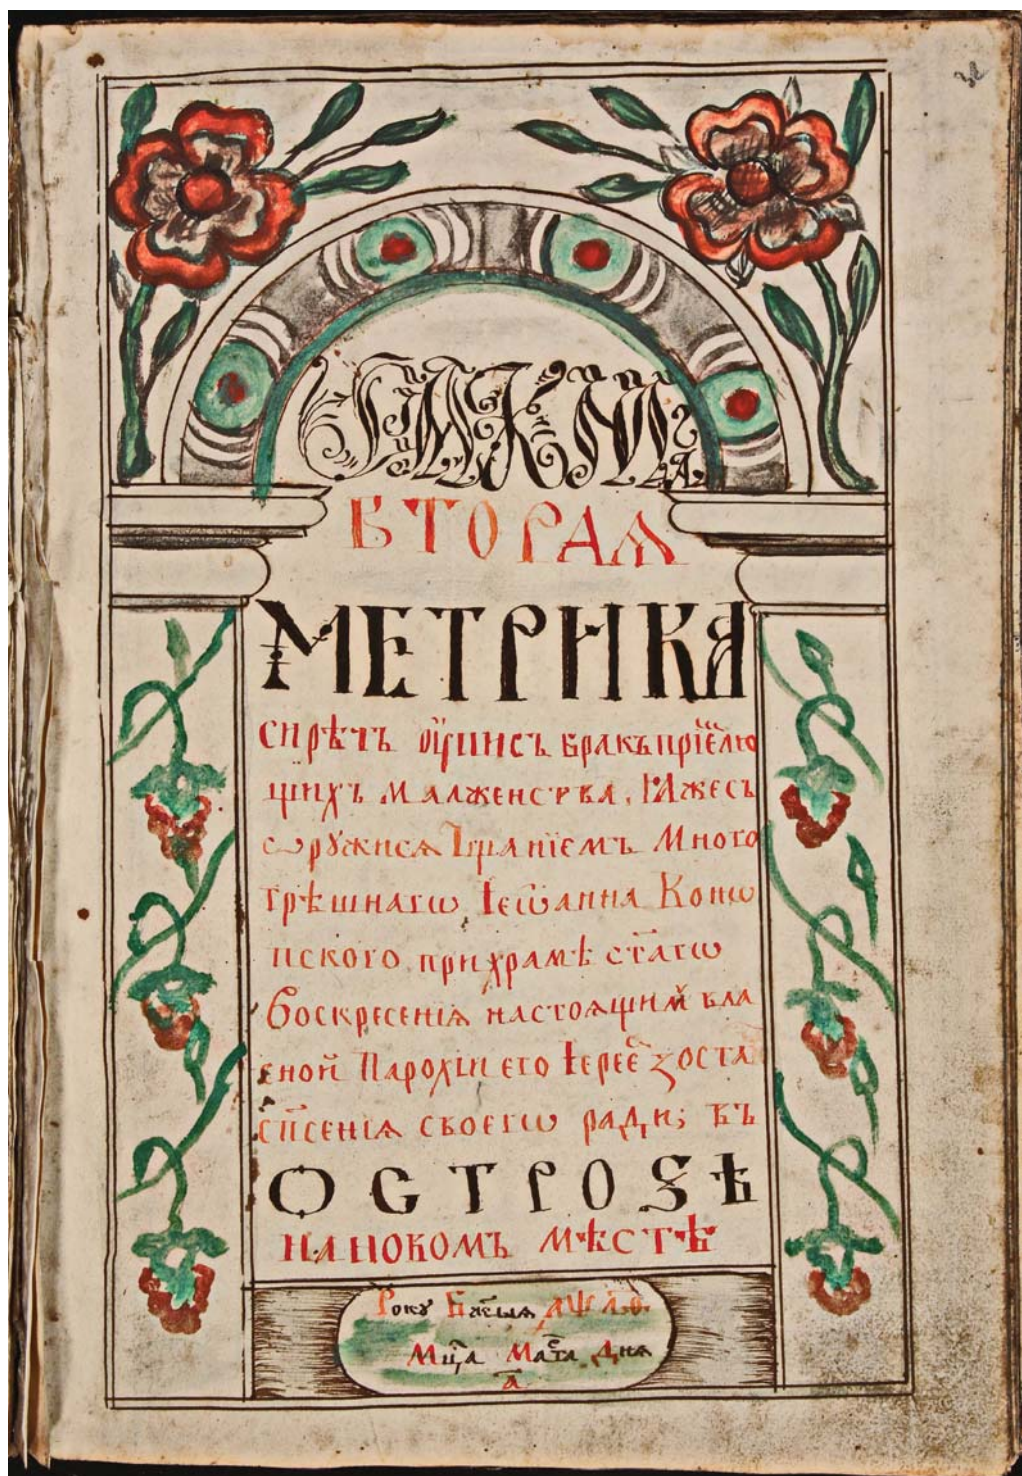 КНИГА
ВТОРАѦ
МЕТРИКА
сирѣчъ ѡ҆писъ бракъ приемлю
щихъ малженства, ꙗжесъ
ѡружисѧ тщаніемъ Много
грѣшнагѡ Іеѡанна Коно
пского при храмѣ ст҃агѡ
Воскресенїѧ настоѧщим̾ вла
сной Парохіи его Іерее҆ зоста
сп҃сенїѧ своегѡ ради; въ
ОСТРОЗѢ
НА НОВОМЪ МѢСТѢ
Року Бж҃ыѧ ҂аѱл.ѳ.
Мц҃а Марта Днѧ
а҃